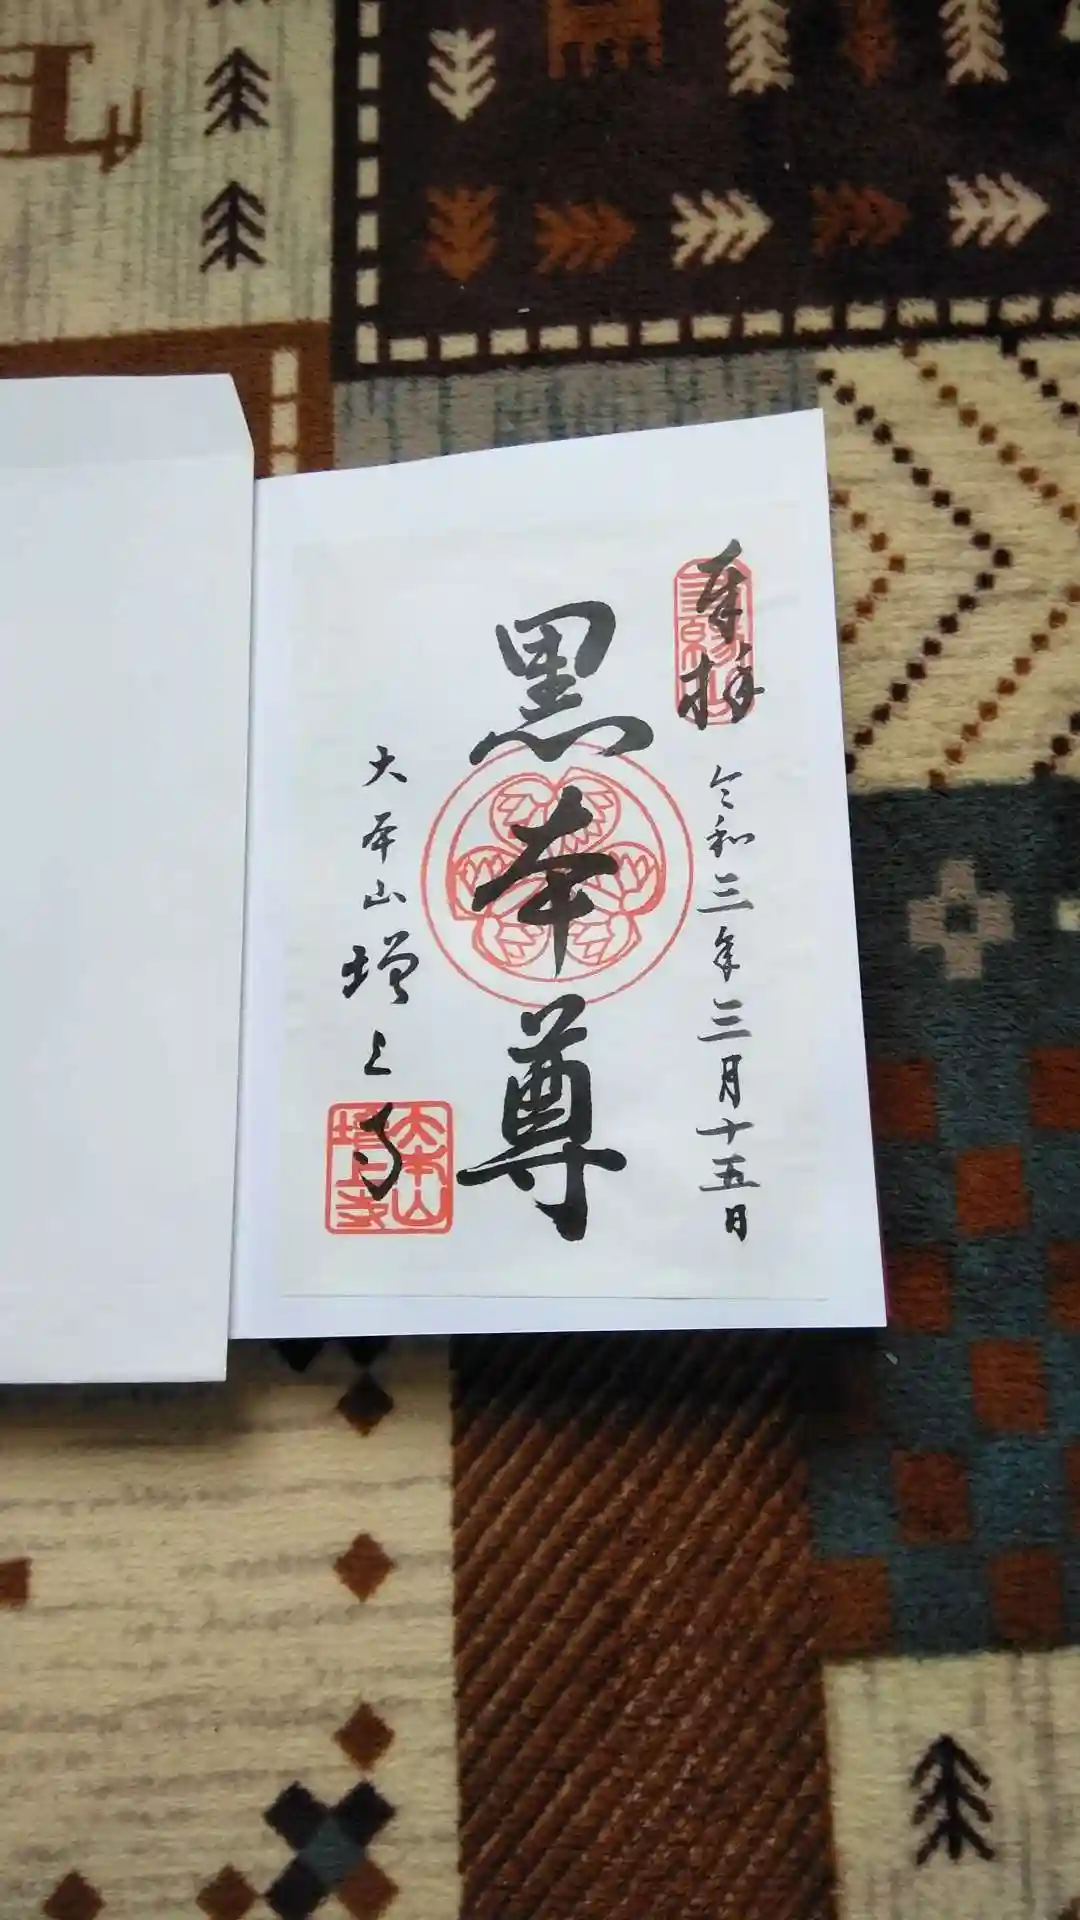 奉拝
三縁山
令和三年三月十五日
黒本尊
大本山増上寺
大本山
増上寺